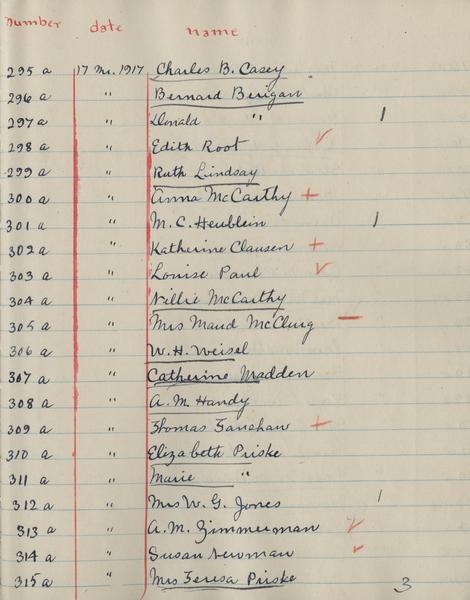 number date name
295 a 17 Mr. 1917 Charles B. Casey
296 a " Bernard Berigan
297 a " Donald " 1
298 a " Edith Root ✓
299 a " Ruth Lindsay
300 a " Anna McCarthy +
301 a " M. C. Heublein 1
302 a " Katherine Clausen +
303 a " Louise Paul ✓
304 a " Nillie McCarthy
305 a " Mrs Maud McClurg —
306 a " W. H. Weisel
307 a " Catherine Madden
308 a " A. M. Handy
309 a " Thomas Fanshaw +
310 a " Elizabeth Priske
311 a " Marie "
312 a " Mrs W. G. Jones 1
313 a " A. M. Zimmerman ✓
314 a " Susan Newman ✓
315 a " Mrs Teresa Priske
3